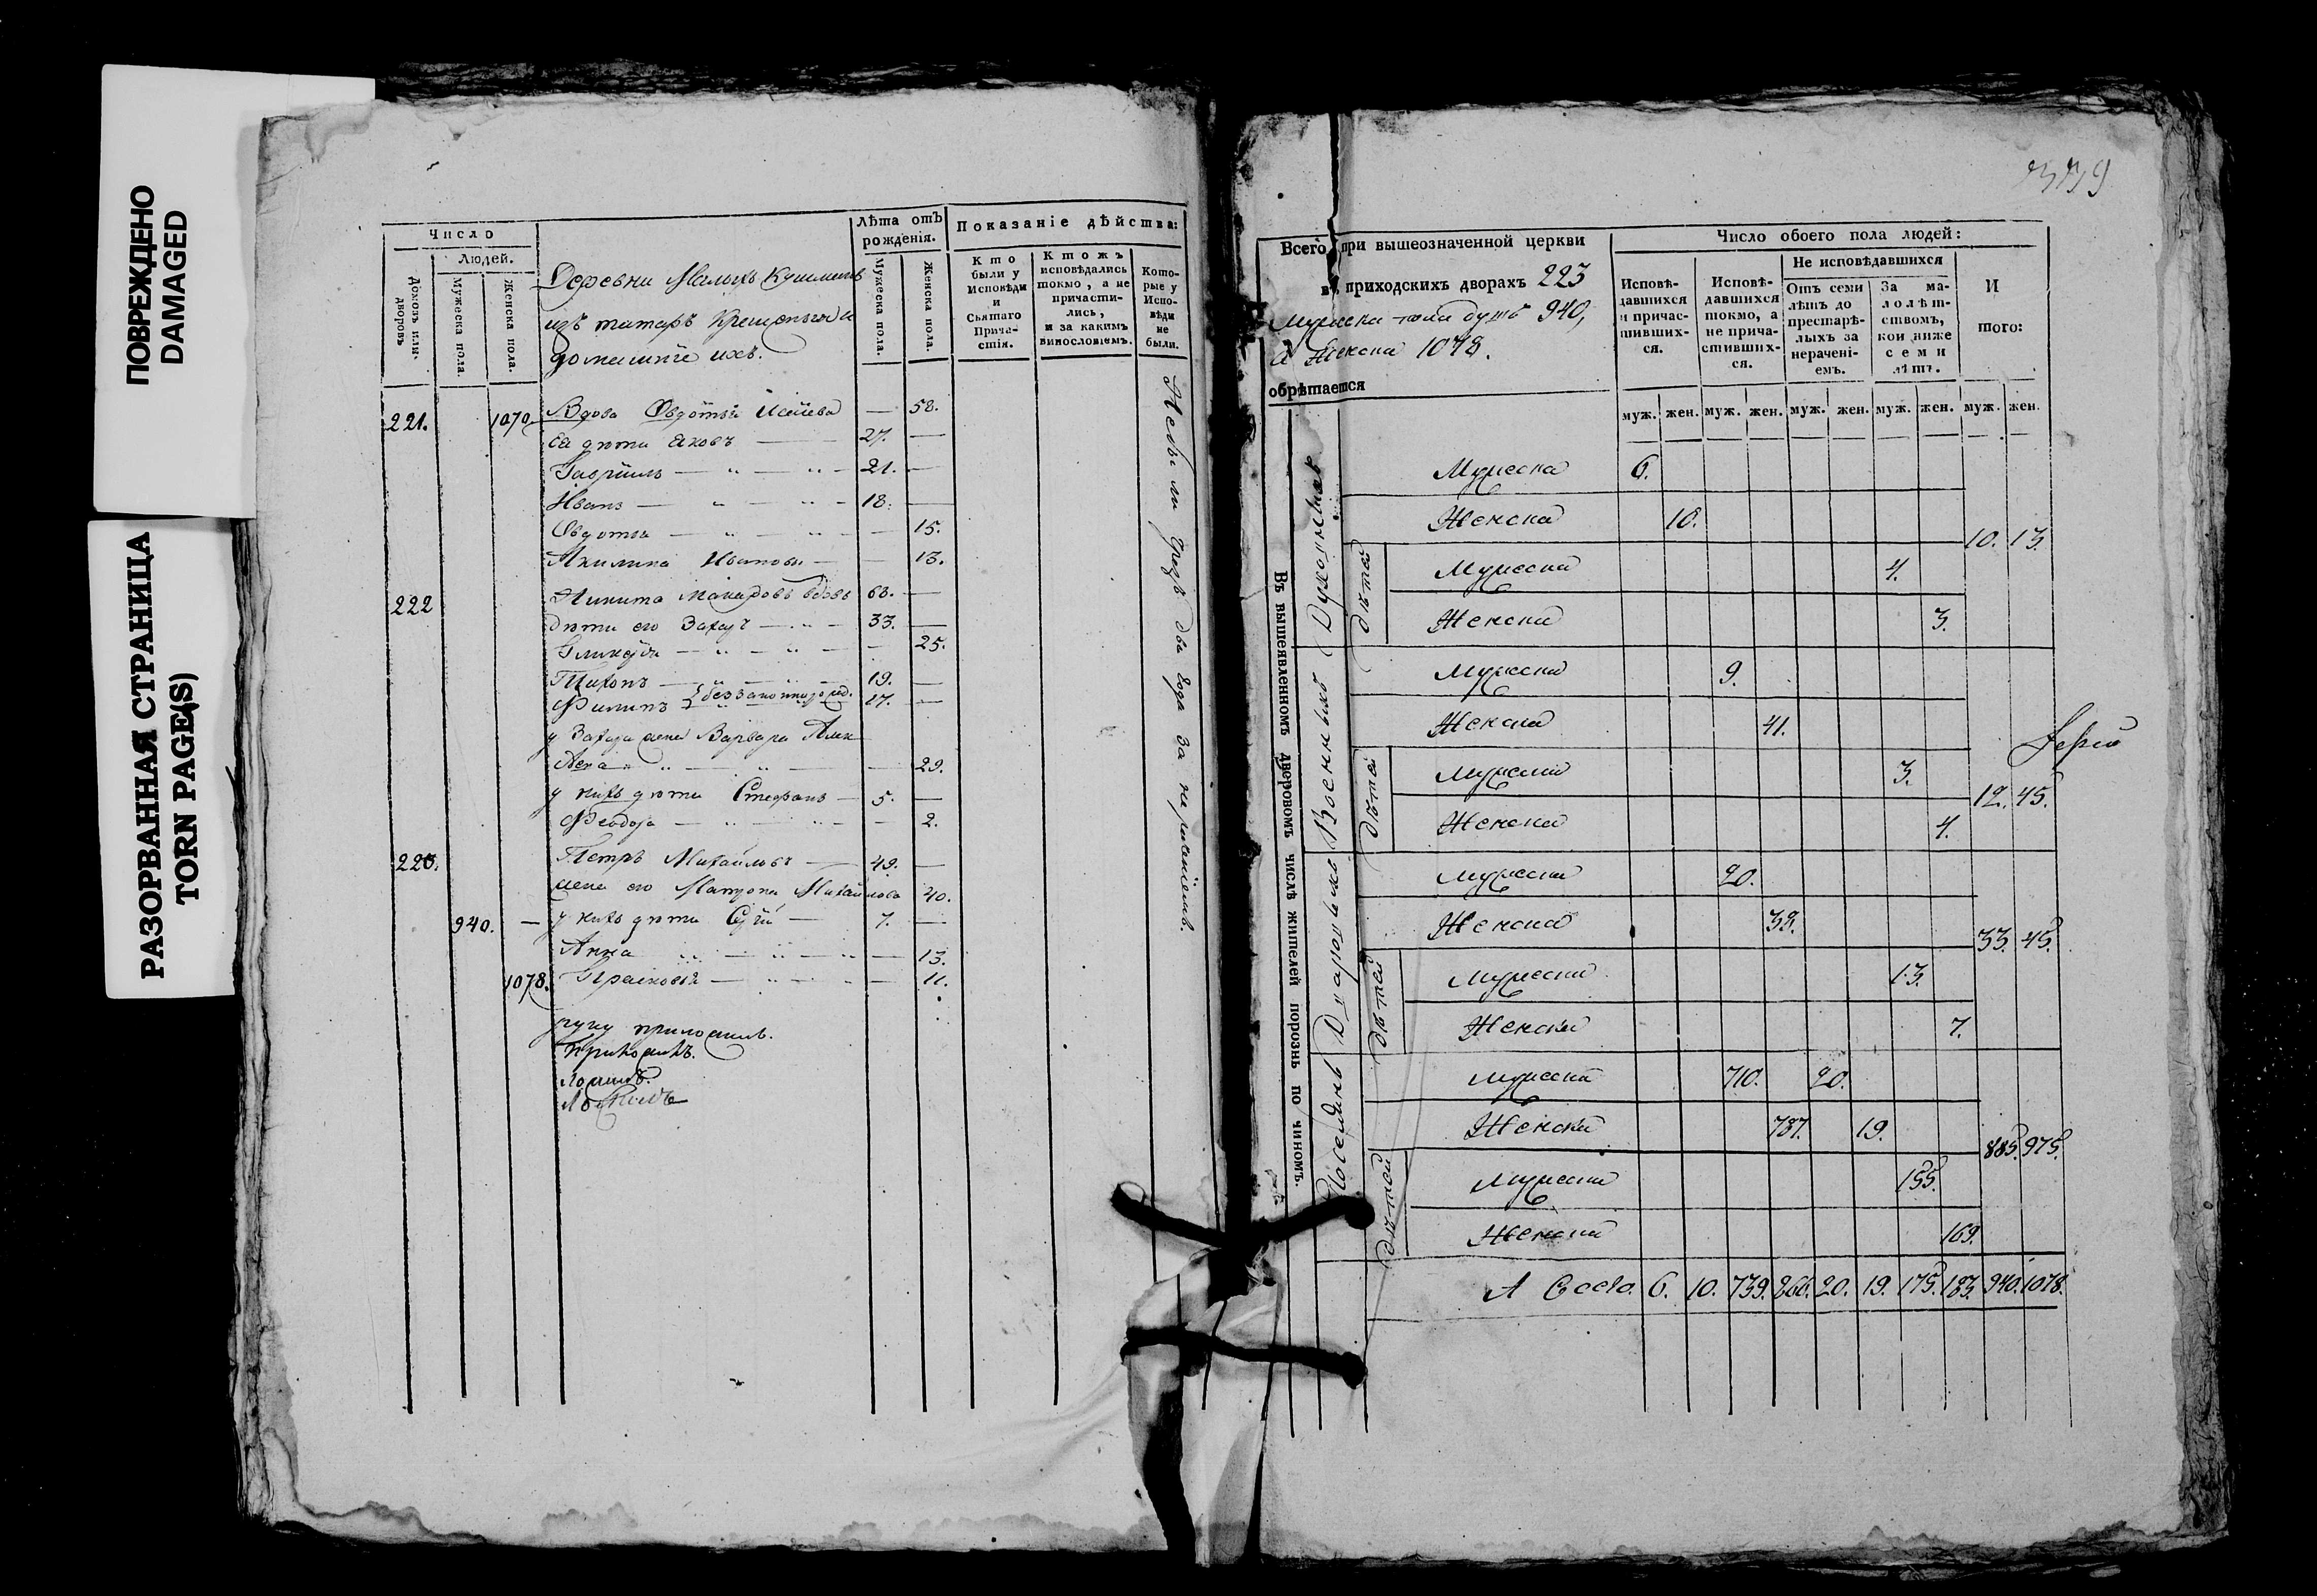 ПОВРЕЖДЕНО
DAMAGED
РАЗОРВАННАЯ СТРАНИЦА
TORN PAGE(S)
Число
Людей.
Домовъ или дворовъ
Мужеска пола.
Женска пола.
Деревни Малыхъ
изъ татаръ крещеныя и
домашніе ихъ.
Лѣта отъ рожденія.
Мужеска пола.
Женска пола.
Показаніе дѣйства:
Кто были у Исповѣди и Святаго Причастія.
Ктожъ исповѣдались токмо, а не причастились, и за какимъ винословіемъ.
Которые у Исповѣди не были.
221. 1070. Вдова Овдотья — 58.
Ея дѣти Яковъ — 27. —
Гаврiилъ — 21. —
Иванъ — 18. —
Овдотья — — 15.
Акилина Иванова — — 13.
222 Никита Макаровъ вдовъ 63. —
Дѣти его Захаръ — 33. —
Гликерія — — 25.
Тихонъ — 19. —
Филипъ 17. —
у Захара жена Варвара
— 29.
у нихъ дѣти Стефанъ — 5. —
Феодора — — 2.
223. Петръ Михайловъ — 49. —
жена его Матрона Михайлова 40.
940. — у нихъ дѣти — 7. —
Анна — — 13.
1078. Прасковья — — 11.
руку приложилъ.
два года за нераченіемъ.
Всего при вышеозначенной церкви
въ приходскихъ дворахъ 223
Мужеска пола душъ 940,
а Женска 1078.
обрѣтается
Число обоего пола людей:
Исповѣдавшихся и причастившихся.
Исповѣдавшихся токмо, а не причастившихся.
Не исповѣдавшихся
Отъ семи лѣтъ до престарѣлыхъ за нераченіемъ.
За малолѣтствомъ, кои ниже семи лѣтъ.
И того:
муж. жен. муж. жен. муж. жен. муж. жен. муж. жен.
Въ вышеявленномъ дверовомъ числѣ жителей порознь по чиномъ.
Духовныхъ
Мужеска 6.
Женска 10.
10. 13.
дѣтей
Мужеска 4.
Женска 3.
Военныхъ
Мужеска 9.
Женска 41.
12. 45.
дѣтей
Мужеска 3.
Женска 4.
Мужеска 20.
Женска 38.
33. 45.
дѣтей
Мужеска 13.
Женска 7.
Поселянъ
Мужеска 710. 20.
Женска 787. 19.
885. 975.
дѣтей
Мужеска 155.
Женска 169.
А Всего. 6. 10. 739. 866. 20. 19. 175. 183. 940. 1078.